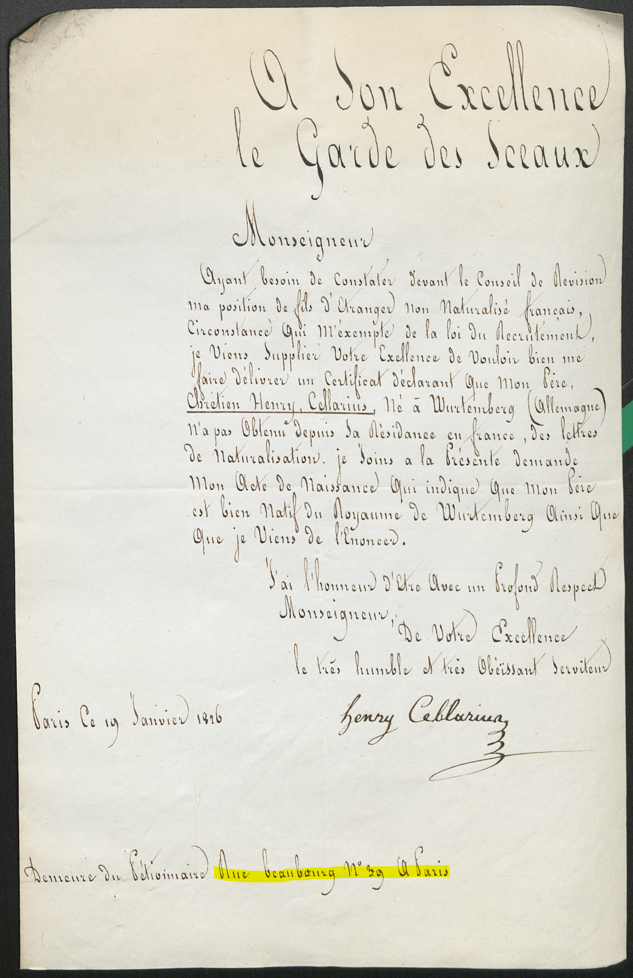 A Son Excellence
le Garde des Sceaux
Monseigneur
Ayant besoin de Constater devant le Conseil de Revision
ma position de fils d'Etranger non Naturalisé français,
Circonstance Qui m'éxempte de la loi du Recrutement,
je Viens Supplier Votre Exellence de Vouloir bien me
faire délivrer un Certificat déclarant Que Mon Père,
Chrétien Henry, Cellarius, Né à Wurtemberg (Allemagne)
N'a pas Obtenu depuis Sa Résidance en france, des lettres
de Naturalisation. je Joins a la Présente demande
Mon Acte de Naissance Qui indique Que Mon Père
est bien Natif du Royaume de Wurtemberg Ainsi Que
Que je Viens de l'Enoncer.
J'ai l'honneur d'Etre Avec un Profond Respect
Monseigneur,
De Votre Excellence
le très humble et très Obéissant Serviteur
Paris Ce 19 Janvier 1826
henry Cellarius
Demeure du Pétionnaire Rue beaubourg N° 39 A Paris